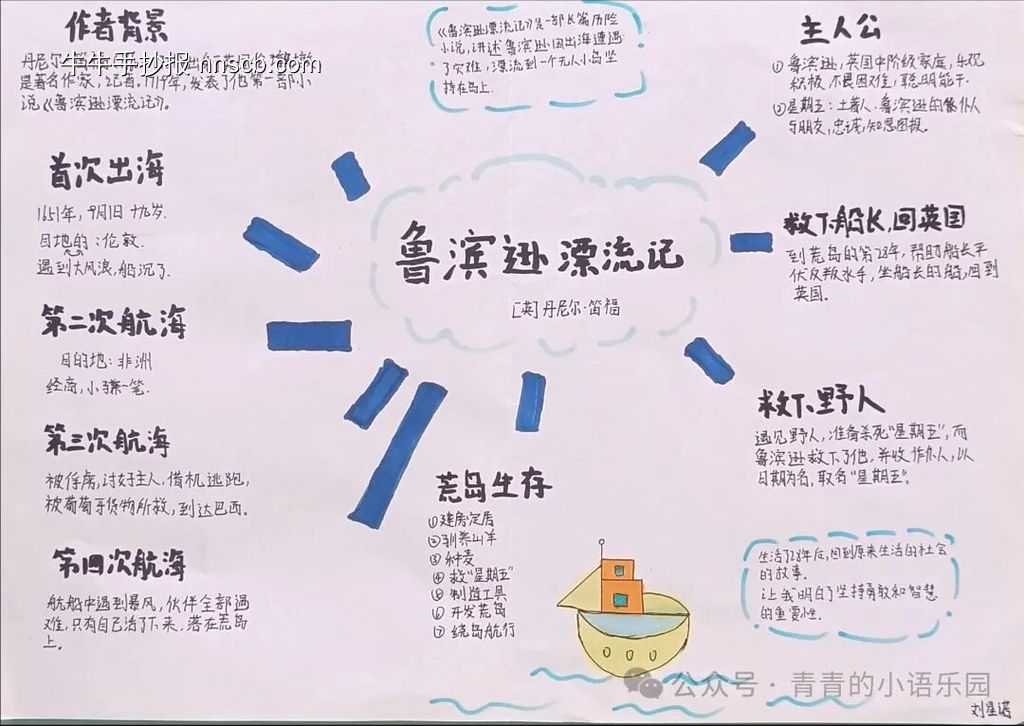 作者背景
丹尼尔
牛牛手抄报 nnscb.com
是著名作家，记者。1719年，发表了他第一部小
说《鲁滨逊漂流记》。
《鲁滨逊漂流记》是一部长篇历险
小说，讲述鲁滨逊因出海遭遇
了灾难，漂流到一个无人小岛坚
持在岛上.
主人公
① 鲁滨逊，英国中阶级家庭，乐观
积极，不畏困难，聪明能干.
②星期五：土著人.鲁滨逊的
与朋友，忠诚，知恩图报。
首次出海
1651年，9月1日 十九岁.
目地的：伦敦.
遇到大风浪，船沉了.
鲁滨逊漂流记
[英]丹尼尔·笛福
救下船长，回英国
到荒岛的第28年，帮助船长平
伏反叛水手，坐船长的船，回到
英国.
第二次航海
目的地：非洲
经商，小赚一笔.
第三次航海
被俘虏，讨好主人，借机逃跑，
被葡萄牙货物所救，到达巴西.
救下野人
遇见野人，准备杀死“星期五”，而
鲁滨逊救下了他，并收作仆人，以
日期为名，取名“星期五”.
荒岛生存
①建房定居
②驯养山羊
③种麦
④救“星期五”
⑤制造工具
⑥开发荒岛
⑦绕岛航行
第四次航海
航船中遇到暴风，伙伴全部遇
难，只有自己活了下来，落在荒岛
上.
生活了28年后，回到原来生活的社会
的故事.
让我明白了坚持勇敢和智慧
的重要性.
公众号 · 青青的小语乐园
刘星诺